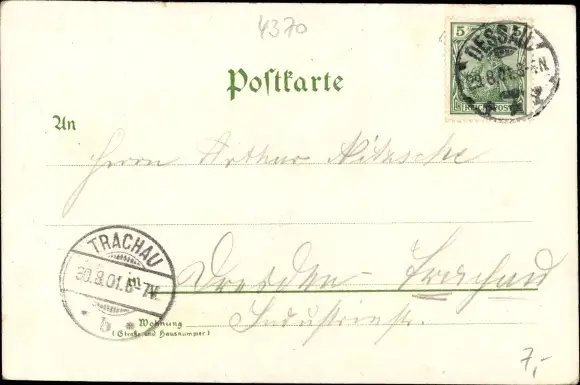 4370
5
REICHSPOST
DESSAU
29.8.01.8-9N
Postkarte
An
Herrn Arthur Nitzsche
TRACHAU
30.8.01.6-7V.
b
Dresden-Trachau
Wohnung
(Straße und Hausnummer)
Industriestr.
7,-